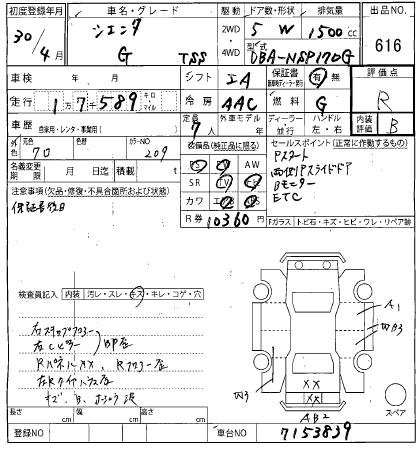 初度登録年月 車名・グレード 駆動 ドア数・形状 排気量 出品NO.
30/4月 シエンタ 2WD 5 W 1500cc 616
G TSS 4WD 型式 DBA-NSP170G
車検 年 月 シフト IA 保証書 有 無 評価点
走行 1万7千589 キロ マイル 冷房 AAC 燃料 G R
車歴 自家用・レンタ・事業用( ) 定員 7人 外車モデル 年 ディーラー 並行 ハンドル 左・右 内装評価 B
外色 元色 70 色替 カラーNO 209 装備品(純正品に限る) セールスポイント(正常に作動するもの)
PS PW AW Pスタート
名義変更期限 月 日迄 積載 t SR TV 両側Pスライドドア
注意事項(欠品・修復・不具合箇所および状態) カワ Bモニター
保証書後日 ETC
R券 10360円 Fガラス トビ石・キズ・ヒビ・ワレ・リペア跡
検査員記入 内装 汚レ・スレ・キズ・キレ・コゲ・穴
A1
右ステップフロアー
右Cピラー BP歪
Rパネル××、Rフロアー歪
左Rタイヤハウス歪
××
××
AB2
スペア
長さ cm 幅 cm 高さ cm
登録NO 車台NO 7153839